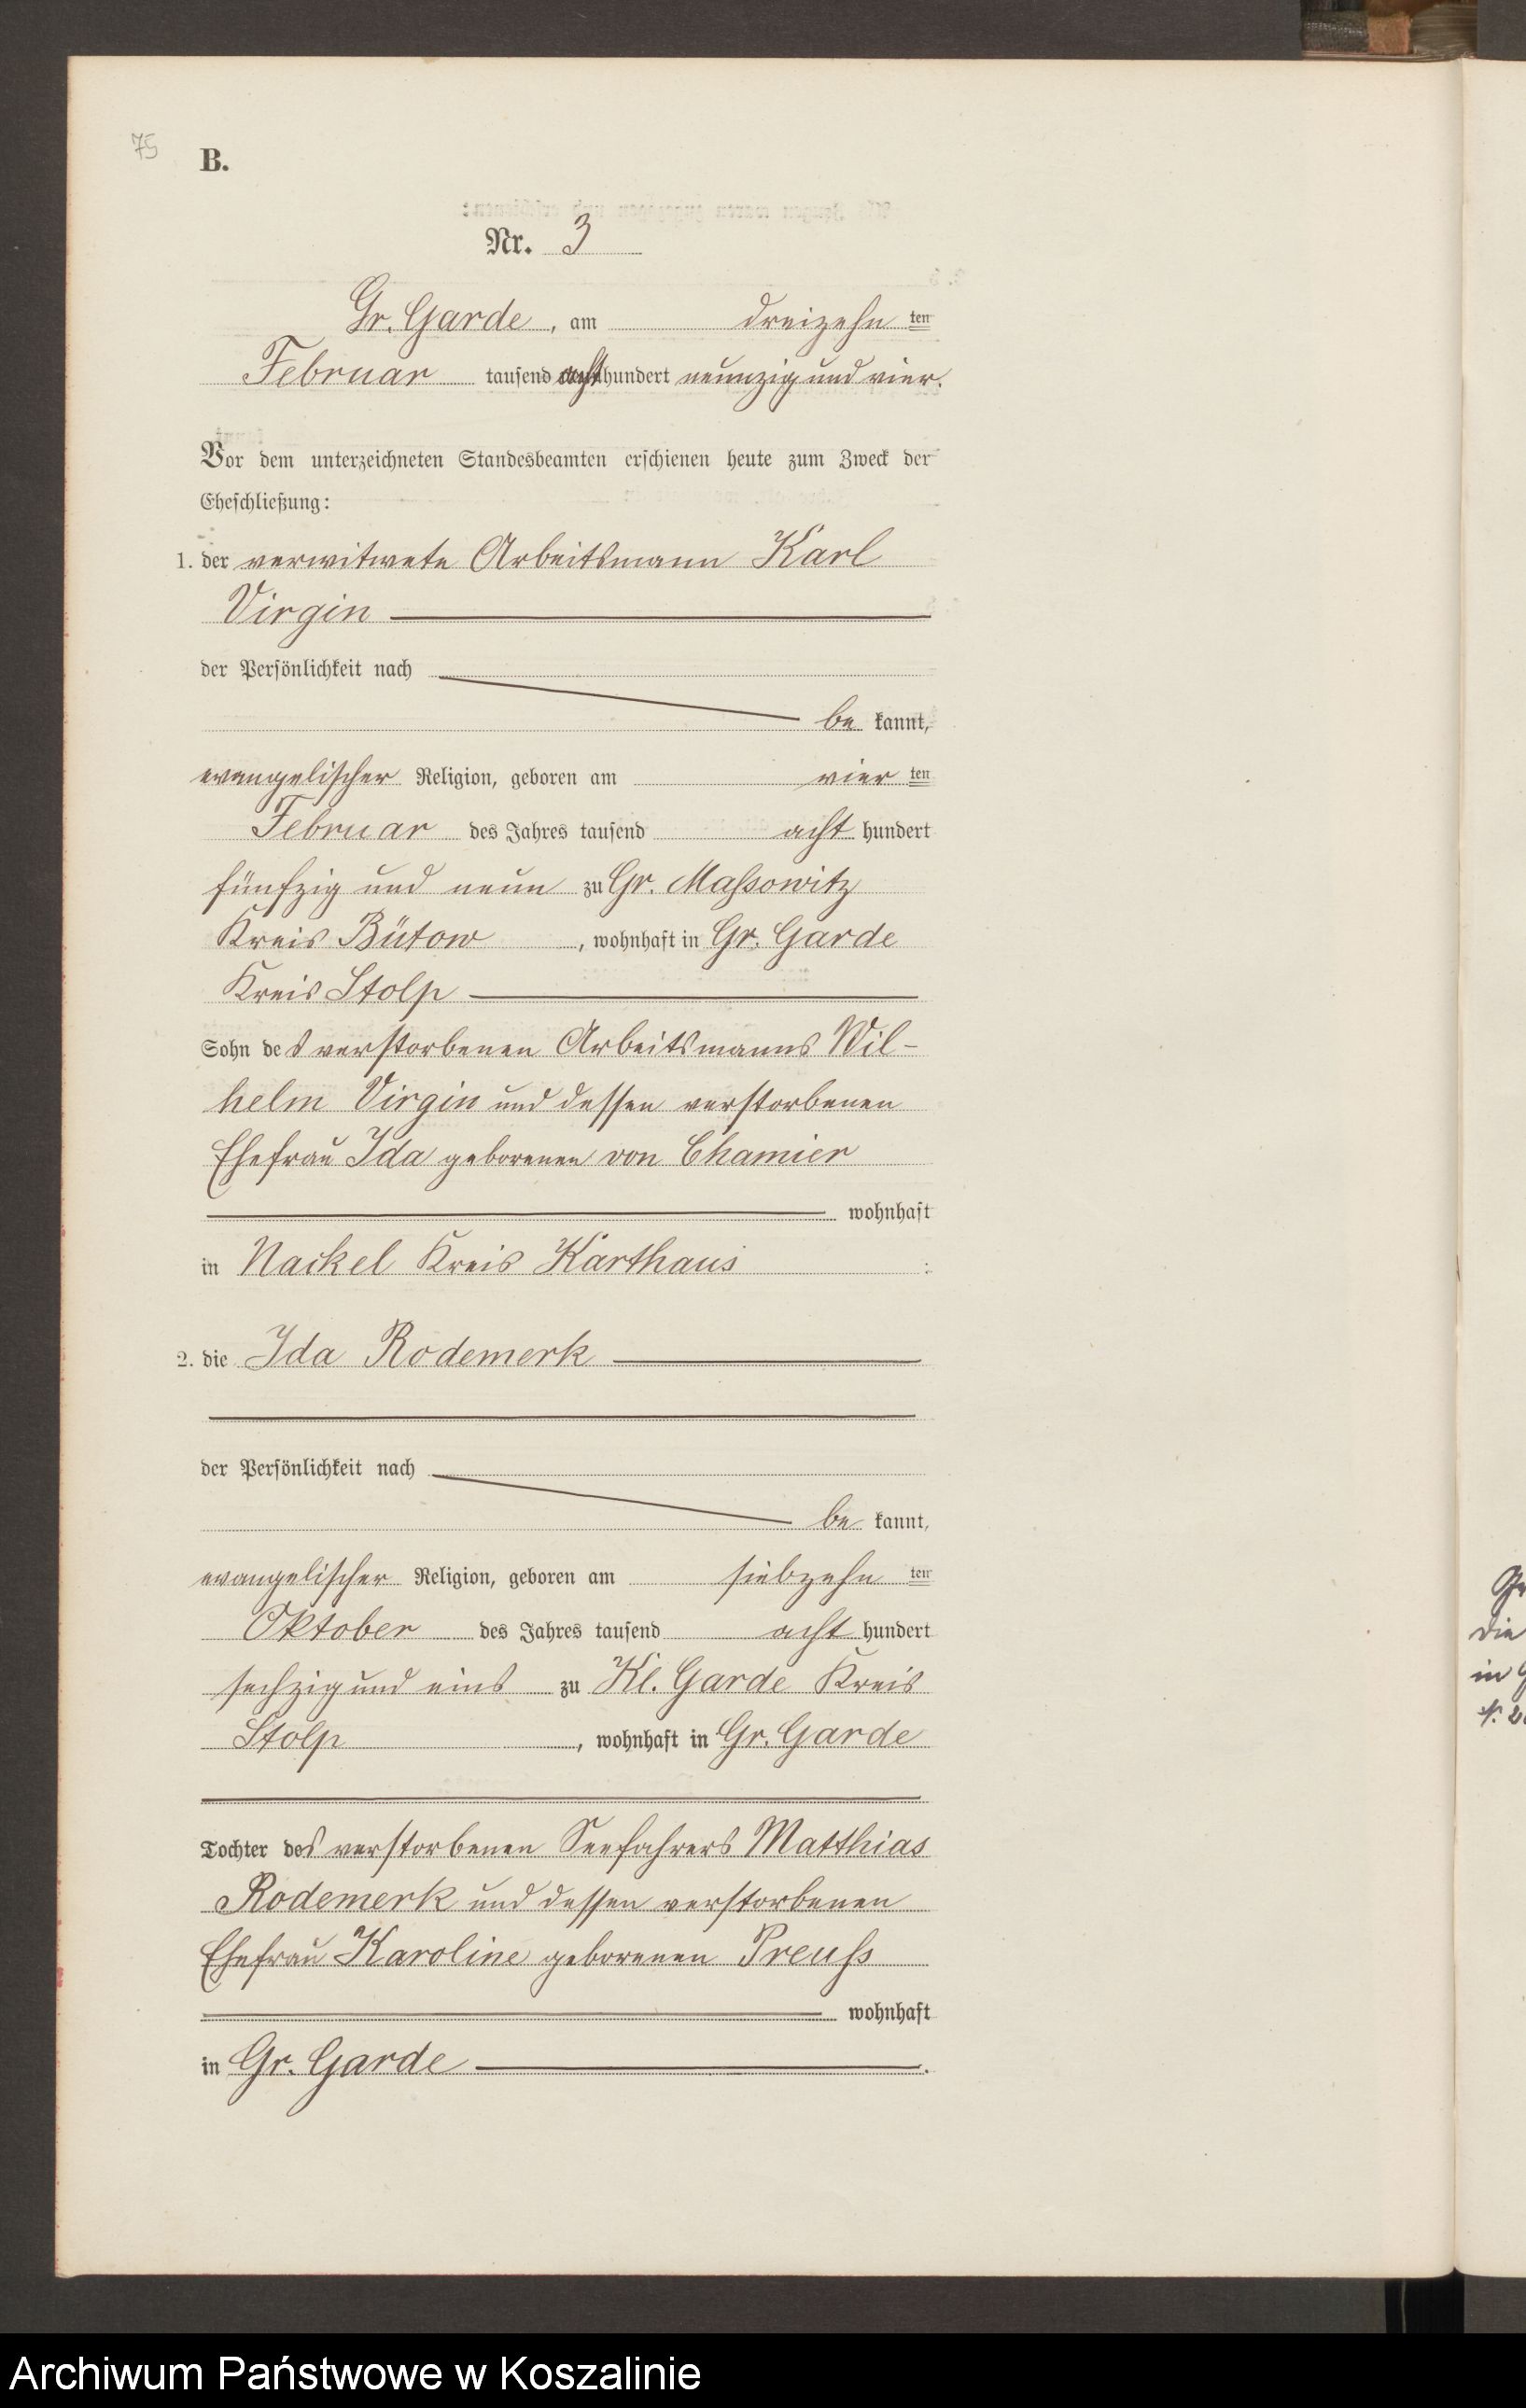 75
B.
Nr. 3
Gr. Garde, am dreizehnten
Februar tausend achthundert neunzig und vier.
Vor dem unterzeichneten Standesbeamten erschienen heute zum Zweck der
Eheschließung:
1. der verwitwete Arbeitsmann Karl
Virgin
der Persönlichkeit nach
be kannt,
evangelischer Religion, geboren am vier ten
Februar des Jahres tausend acht hundert
fünfzig und neun zu Gr. Massowitz
Kreis Bütow, wohnhaft in Gr. Garde
Kreis Stolp
Sohn des verstorbenen Arbeitsmanns Wil-
helm Virgin und dessen verstorbenen
Ehefrau Ida geborenen von Chamier
wohnhaft
in Nackel Kreis Karthaus :
2. die Ida Rodemerk
der Persönlichkeit nach
be kannt,
evangelischer Religion, geboren am siebzehn ten
Oktober des Jahres tausend acht hundert
sechzig und eins zu Kl. Garde Kreis
Stolp, wohnhaft in Gr. Garde
Tochter des verstorbenen Seefahrers Matthias
Rodemerk und dessen verstorbenen
Ehefrau Karoline geborenen Preuß
wohnhaft
in Gr. Garde.
die
in
Archiwum Państwowe w Koszalinie